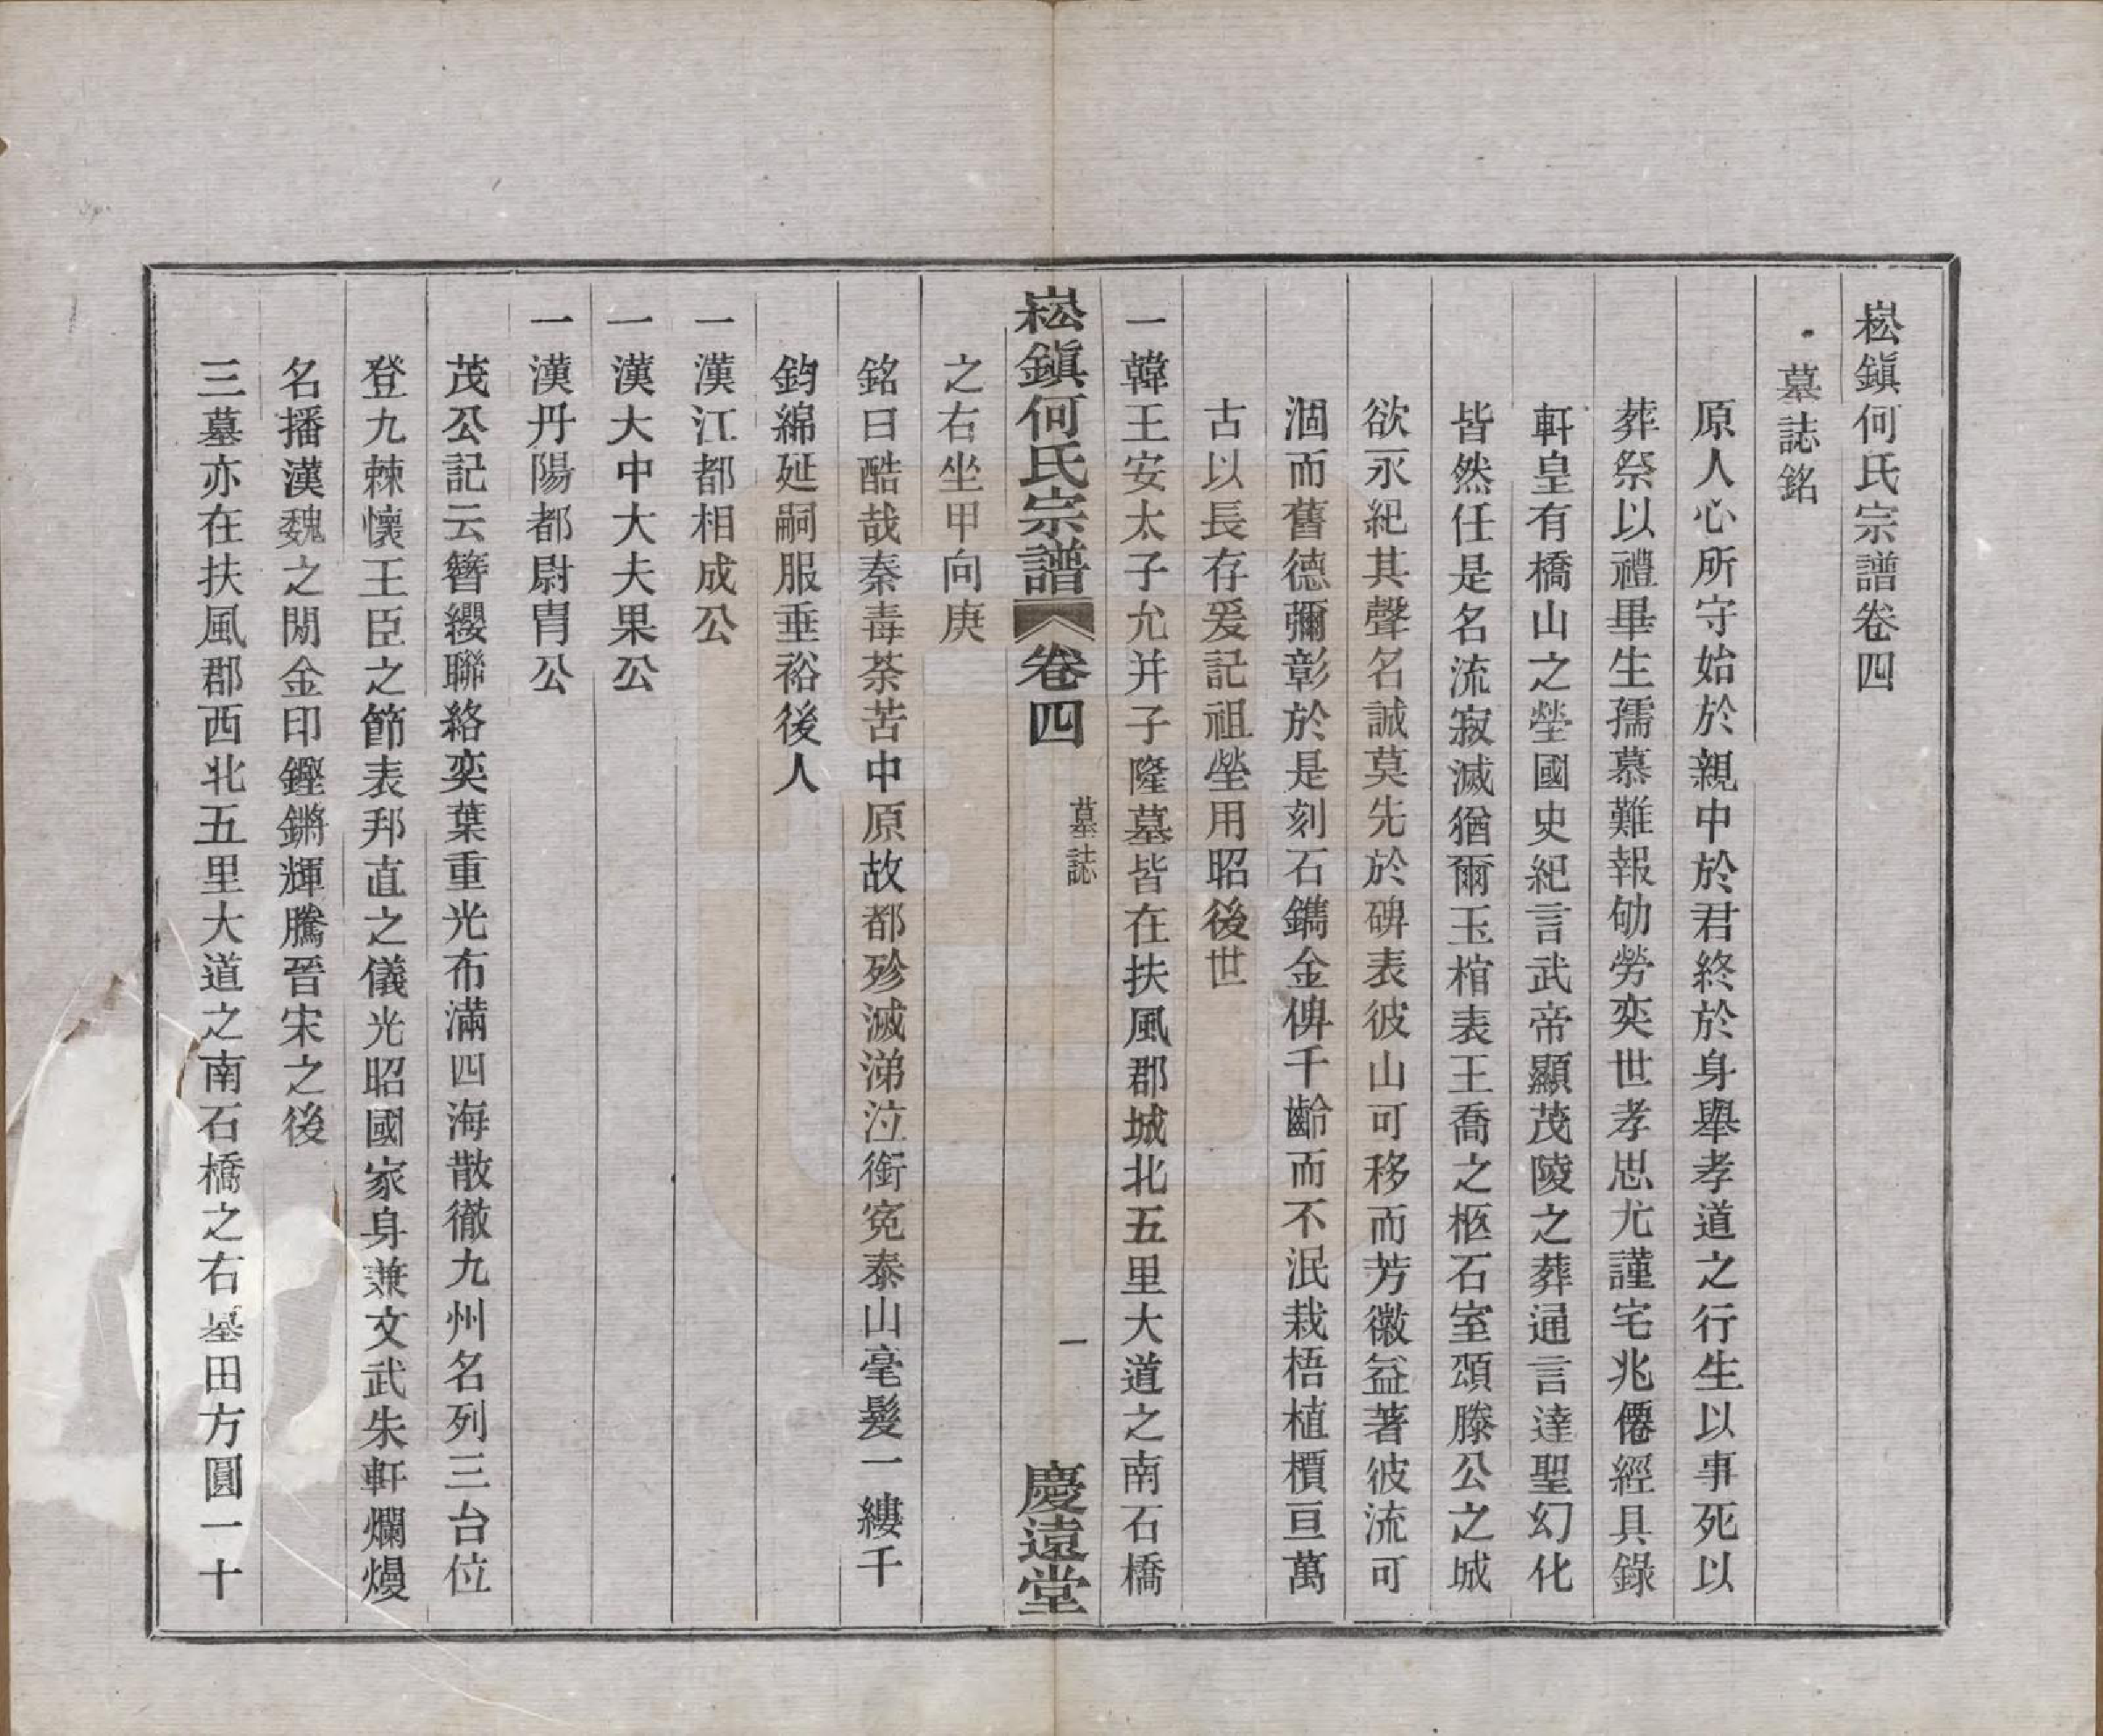 崧鎭何氏宗譜卷四
墓誌銘
原人心所守始於親中於君終於身舉孝道之行生以事死以
葬祭以禮畢生孺慕難報劬勞奕世孝思尤謹宅兆僊經具錄
軒皇有橋山之塋國史紀言武帝顯茂陵之葬通言達聖幻化
皆然任是名流寂滅猶爾玉棺表王喬之柩石室頌滕公之城
欲永紀其聲名誠莫先於碑表彼山可移而芳徽益著彼流可
涸而舊德彌彰於是刻石鐫金俾千齡而不泯栽梧植檟亘萬
古以長存爰記祖塋用昭後世
一韓王安太子允并子隆墓皆在扶風郡城北五里大道之南石橋
崧鎭何氏宗譜 卷四 墓誌 一 慶遠堂
之右坐甲向庚
銘曰酷哉秦毒荼苦中原故都殄滅涕泣銜寃泰山毫髮一縷千
鈞綿延嗣服垂裕後人
一漢江都相成公
一漢大中大夫果公
一漢丹陽都尉胄公
茂公記云簪纓聯絡奕葉重光布滿四海散徹九州名列三台位
登九棘懷王臣之節表邦直之儀光昭國家身兼文武朱軒爛熳
名播漢魏之閒金印鏗鏘輝騰晉宋之後
三墓亦在扶風郡西北五里大道之南石橋之右墓田方圓一十